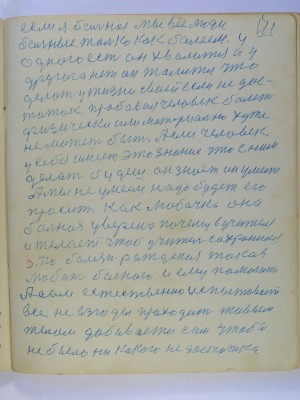 если я больная мы все люди
больные только как болеем. у
одного ест он хвалится а у
другога нет он жалится что
делат у жизни своей если не дос-
таток пробавая человек болеет
физически и материално хуже
не может быт. А если человек
у себе имеет это знание что с ним
делат будеш он знает он умеет
А мы не умеем надо будет его
просит. Как Любочка она
болная уверена почему в учителя
и желает чтоб учител сохранился
Это болная рождения такая
любит болного и ему помогает
А сам естественно испытовает
все невзгоды проходит живым
телом добавается сам чтобы
не было ни какого недостатка